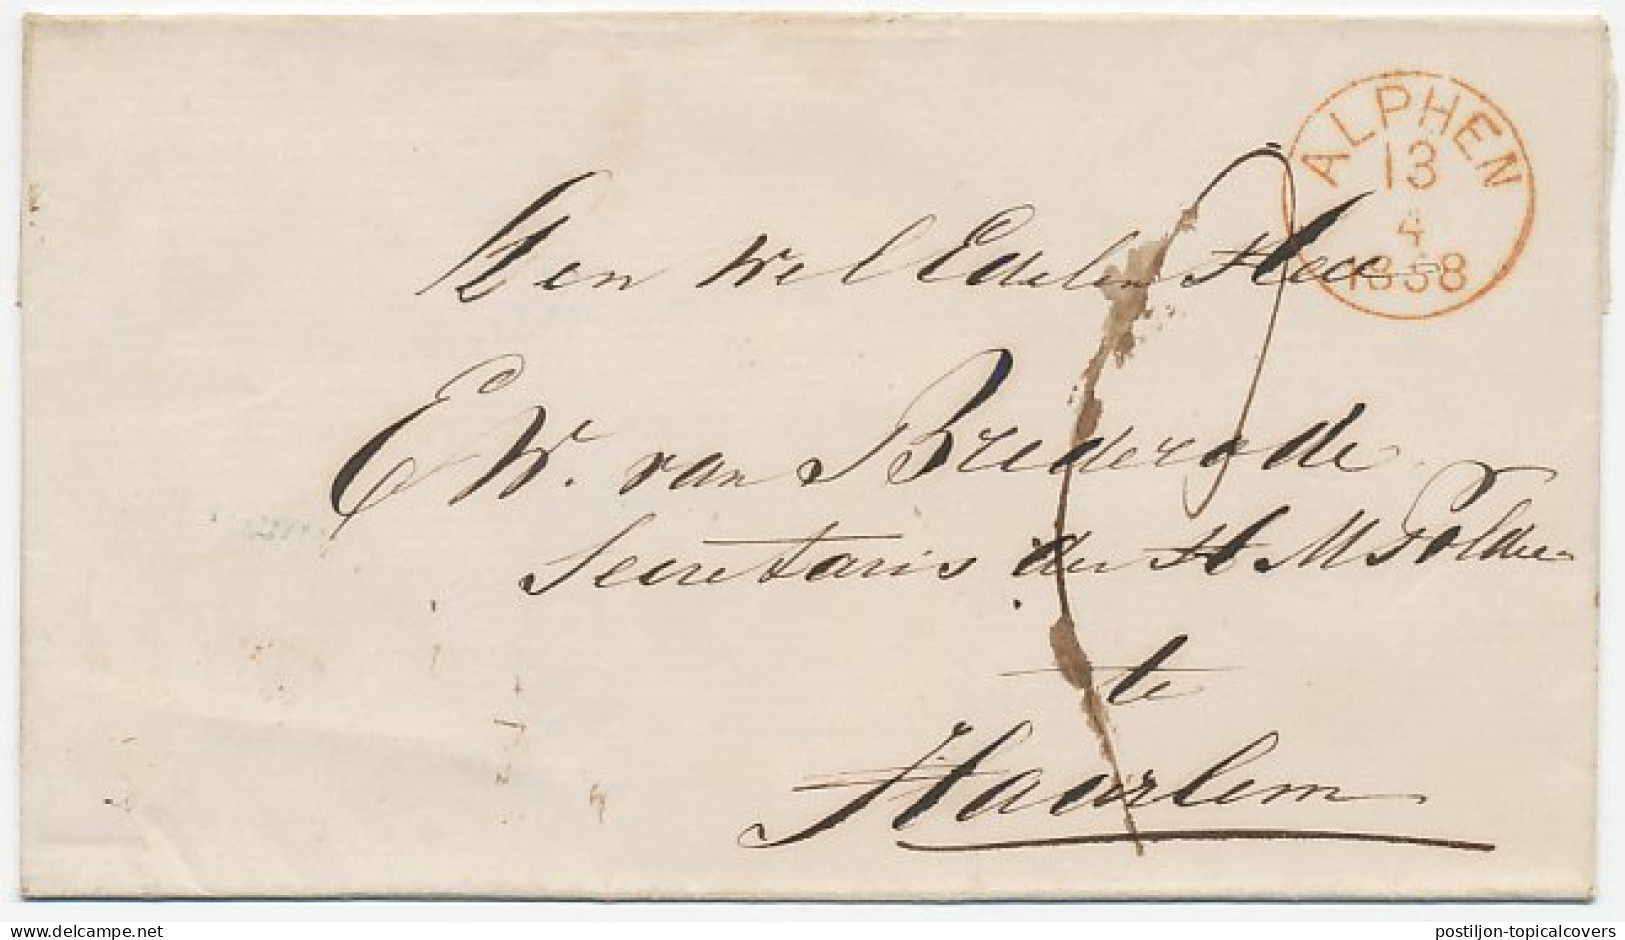 ALPHEN
13
4
1858
Den Wel Edelen Heer
E W. van Brederode
Secretaris der H M Polder
te
Haarlem
delcampe.net
postiljon-topicalcovers